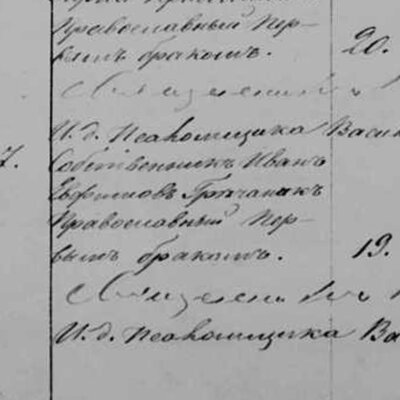 Православный пер-
вымъ бракомъ. 20.
Священникъ
И. д. Псаломщика Васи
7. Собственникъ Иванъ
Евфимовъ Гречаникъ
Православный пер-
вымъ бракомъ. 19.
Священникъ
И. д. Псаломщика Ва